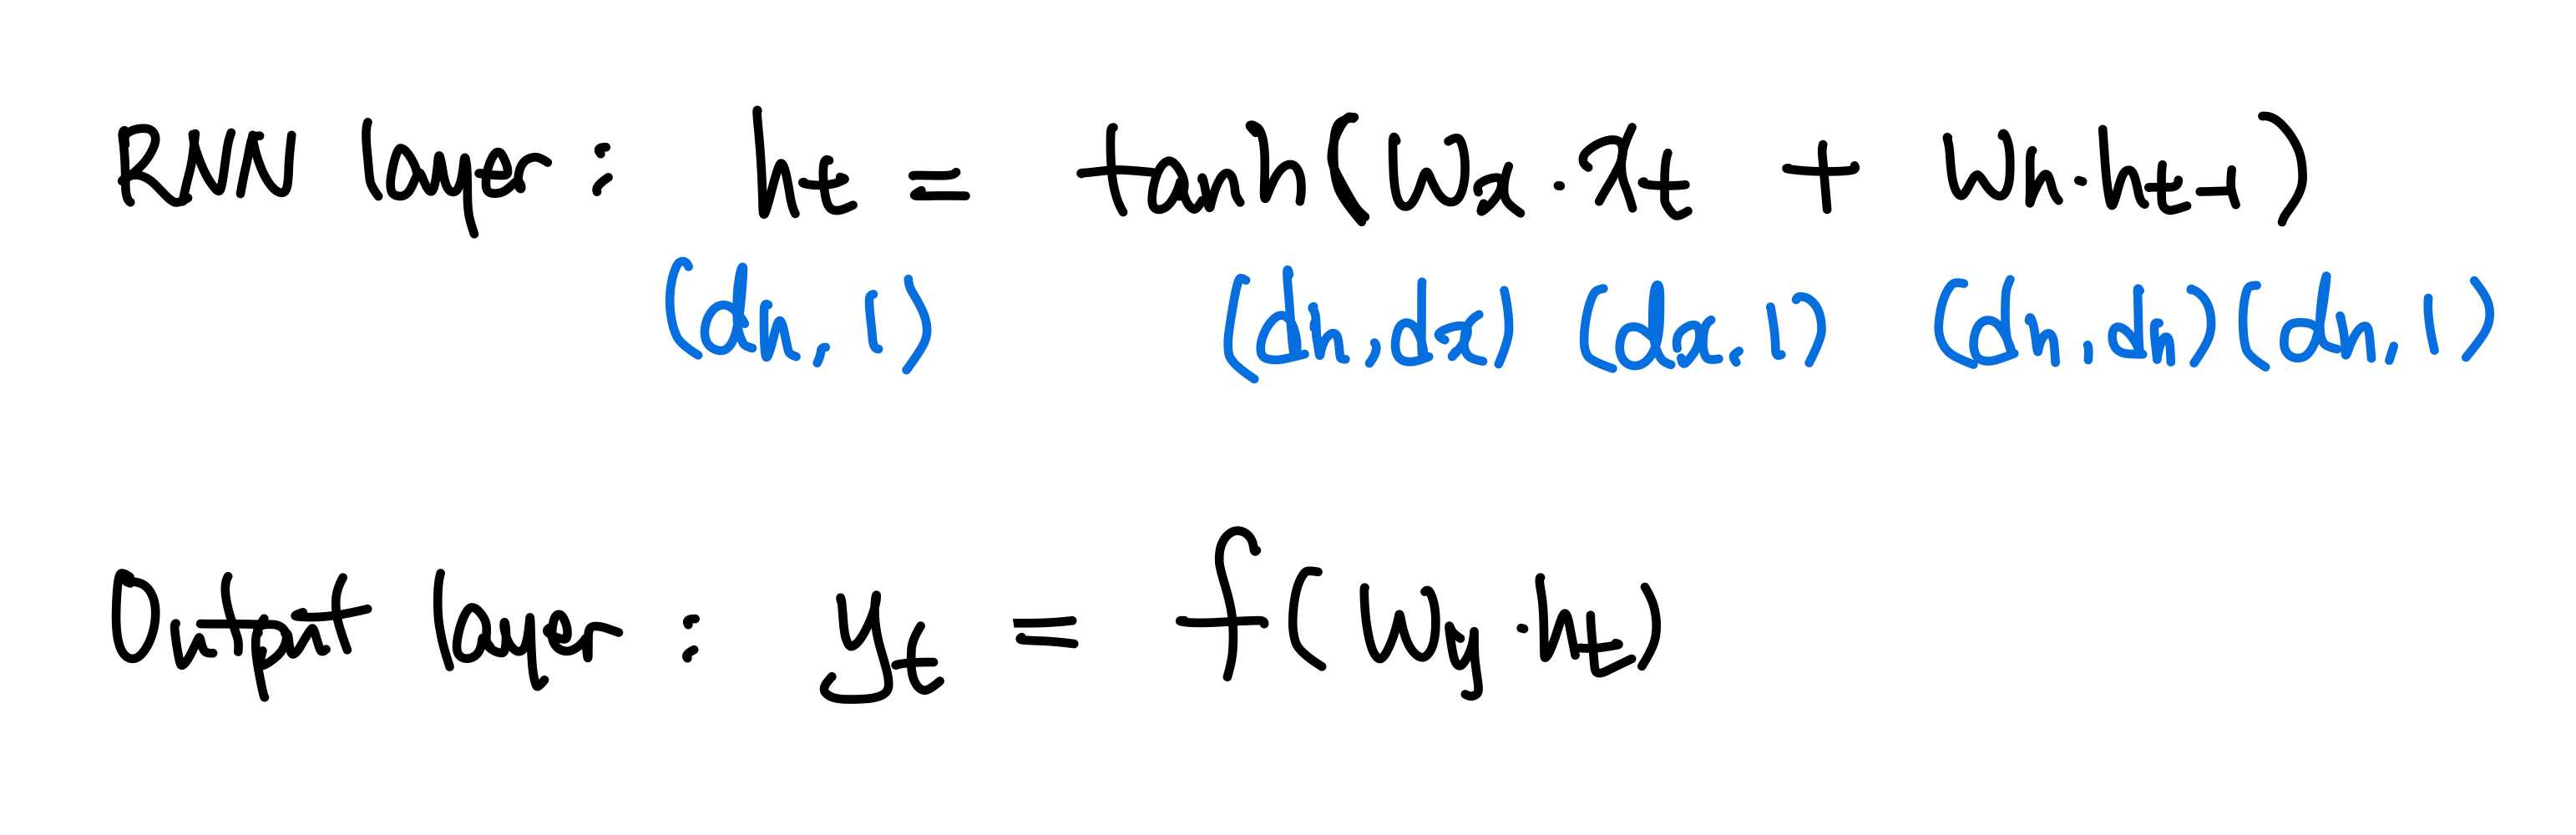 RNN layer : ht = tanh(Wx · xt + Wh · ht-1)
(dh, 1) (dh, dx) (dx, 1) (dh, dh) (dh, 1)
Output layer : yt = f(Wy · ht)